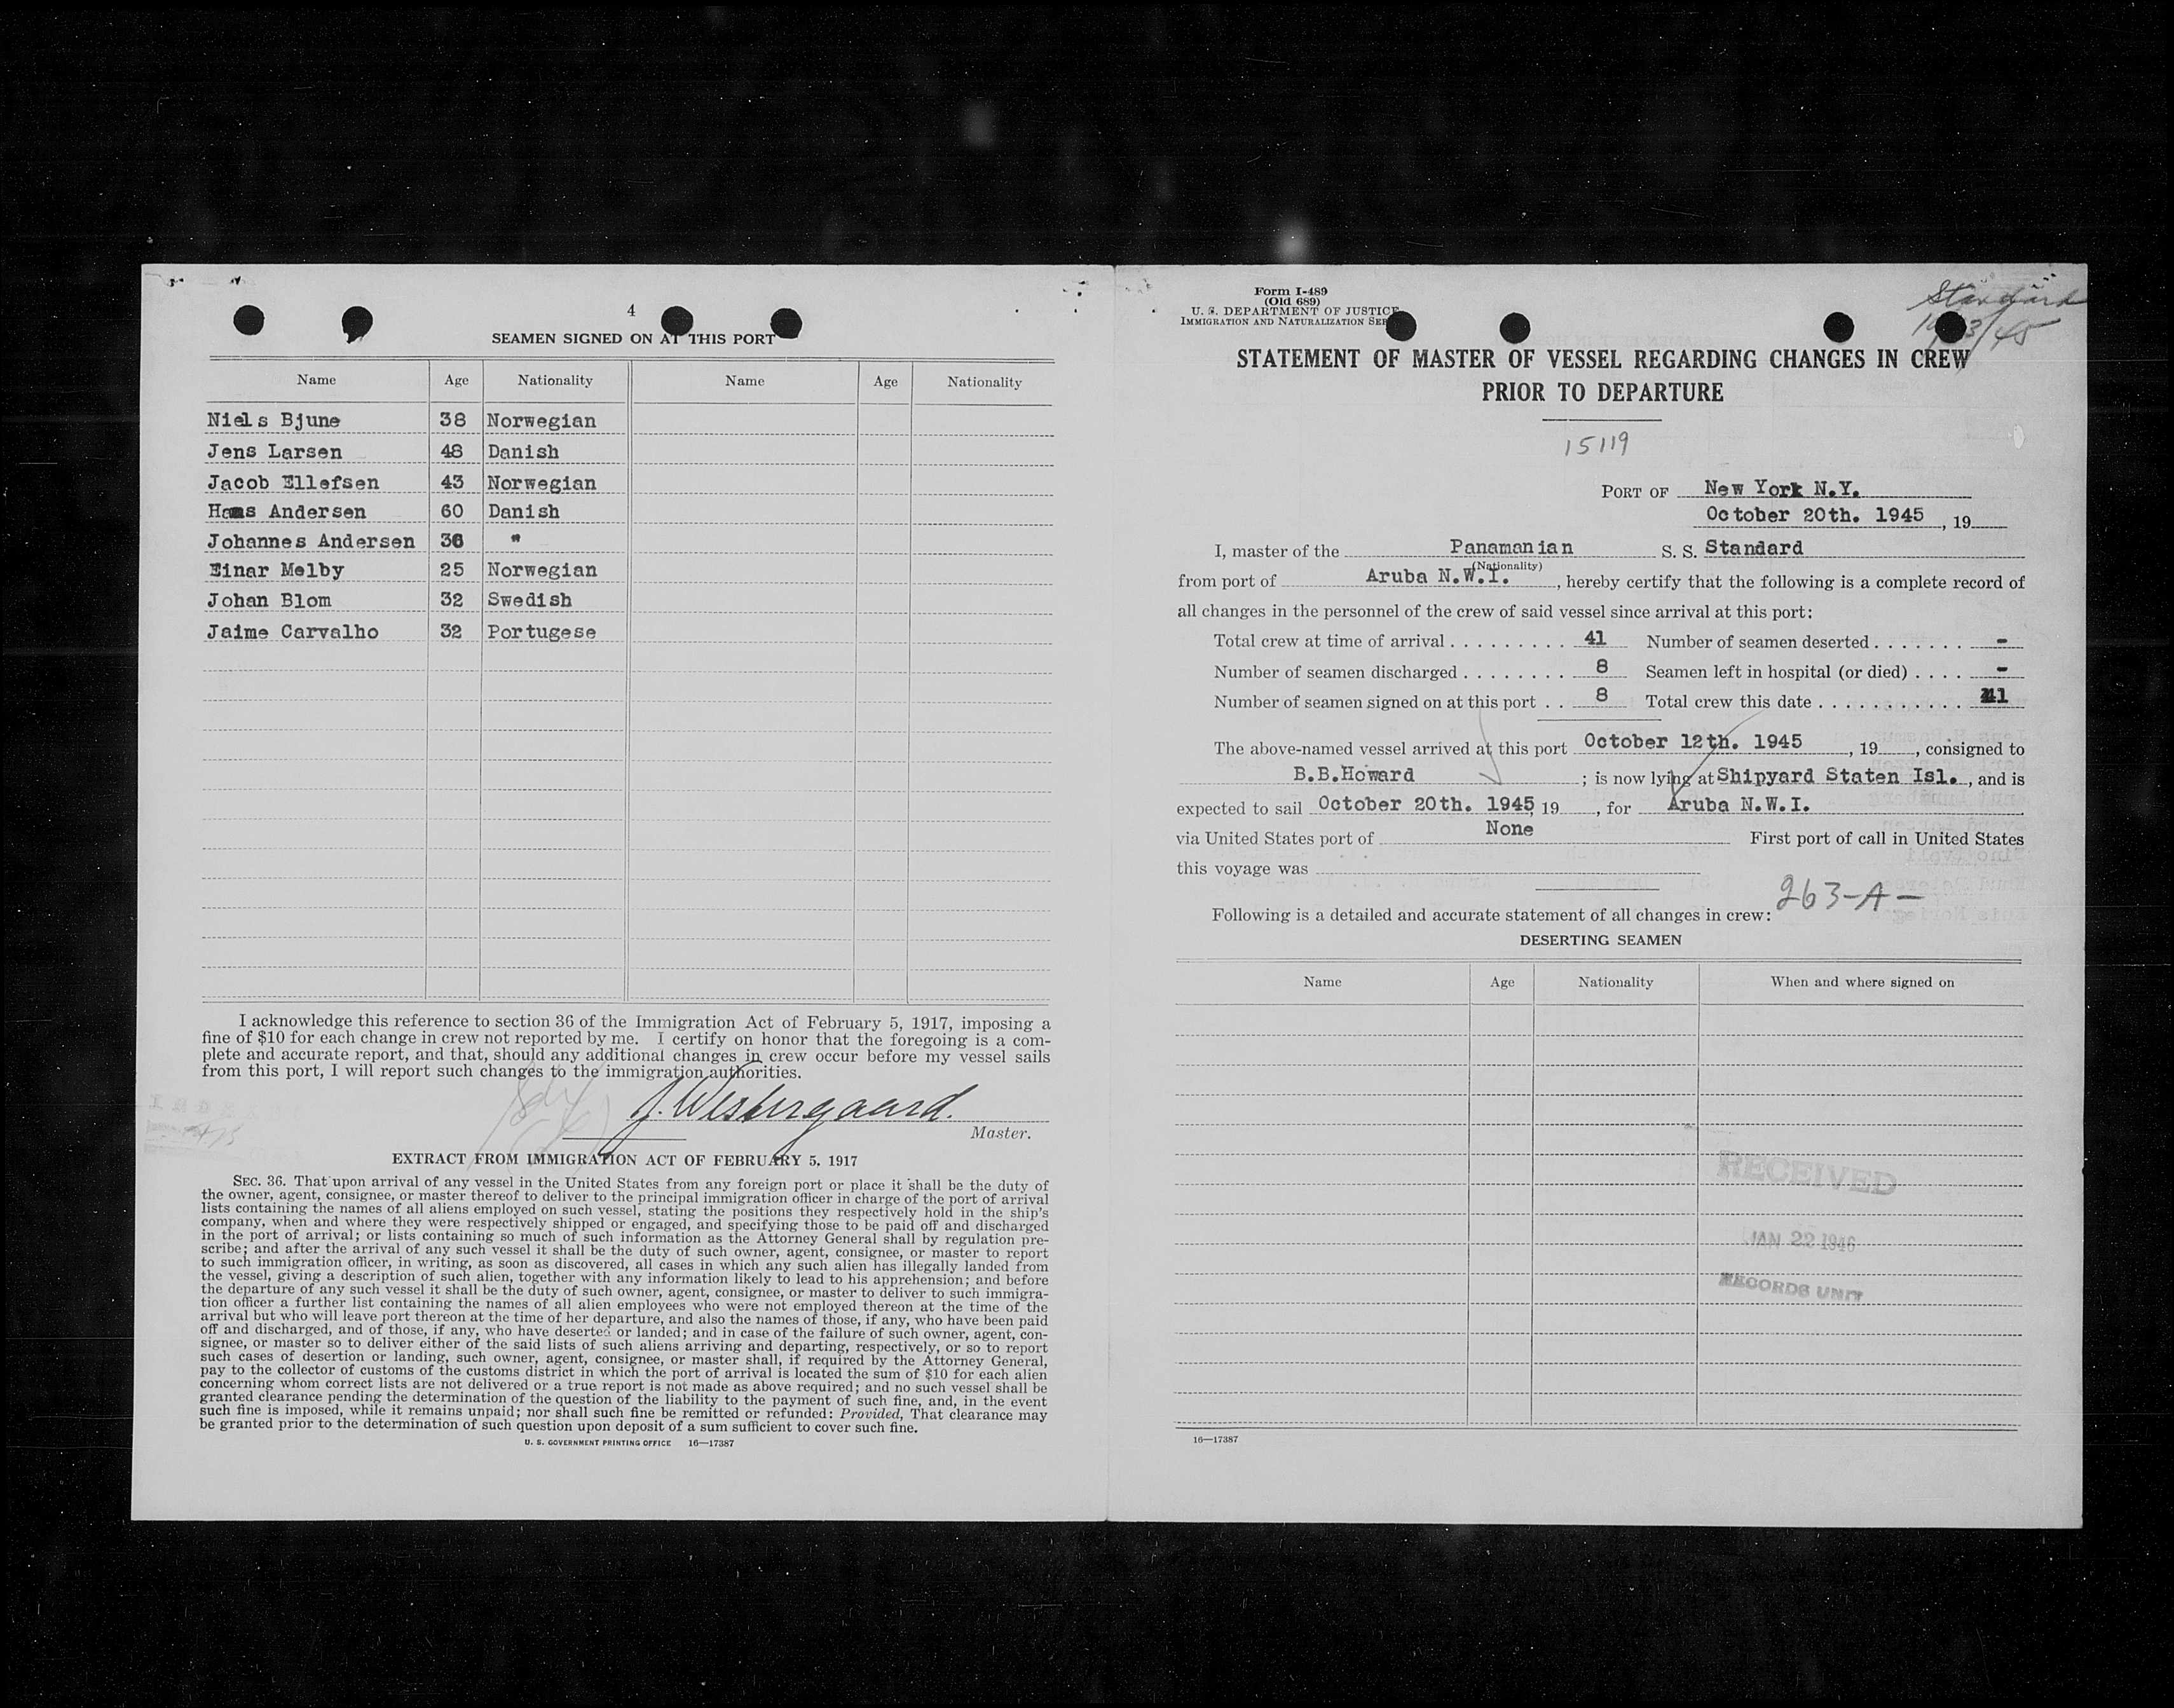 4
SEAMEN SIGNED ON AT THIS PORT
Name Age Nationality Name Age Nationality
Niels Bjune 38 Norwegian
Jens Larsen 48 Danish
Jacob Ellefsen 43 Norwegian
Hans Andersen 60 Danish
Johannes Andersen 36 "
Einar Melby 25 Norwegian
Johan Blom 32 Swedish
Jaime Carvalho 32 Portugese
I acknowledge this reference to section 36 of the Immigration Act of February 5, 1917, imposing a
fine of $10 for each change in crew not reported by me. I certify on honor that the foregoing is a com-
plete and accurate report, and that, should any additional changes in crew occur before my vessel sails
from this port, I will report such changes to the immigration authorities.
J. Westergaard.
Master.
EXTRACT FROM IMMIGRATION ACT OF FEBRUARY 5, 1917
SEC. 36. That upon arrival of any vessel in the United States from any foreign port or place it shall be the duty of
the owner, agent, consignee, or master thereof to deliver to the principal immigration officer in charge of the port of arrival
lists containing the names of all aliens employed on such vessel, stating the positions they respectively hold in the ship's
company, when and where they were respectively shipped or engaged, and specifying those to be paid off and discharged
in the port of arrival; or lists containing so much of such information as the Attorney General shall by regulation pre-
scribe; and after the arrival of any such vessel it shall be the duty of such owner, agent, consignee, or master to report
to such immigration officer, in writing, as soon as discovered, all cases in which any such alien has illegally landed from
the vessel, giving a description of such alien, together with any information likely to lead to his apprehension; and before
the departure of any such vessel it shall be the duty of such owner, agent, consignee, or master to deliver to such immigra-
tion officer a further list containing the names of all alien employees who were not employed thereon at the time of the
arrival but who will leave port thereon at the time of her departure, and also the names of those, if any, who have been paid
off and discharged, and of those, if any, who have deserted or landed; and in case of the failure of such owner, agent, con-
signee, or master so to deliver either of the said lists of such aliens arriving and departing, respectively, or so to report
such cases of desertion or landing, such owner, agent, consignee, or master shall, if required by the Attorney General,
pay to the collector of customs of the customs district in which the port of arrival is located the sum of $10 for each alien
concerning whom correct lists are not delivered or a true report is not made as above required; and no such vessel shall be
granted clearance pending the determination of the question of the liability to the payment of such fine, and, in the event
such fine is imposed, while it remains unpaid; nor shall such fine be remitted or refunded: Provided, That clearance may
be granted prior to the determination of such question upon deposit of a sum sufficient to cover such fine.
U. S. GOVERNMENT PRINTING OFFICE 16—17387
Form I-489
(Old 689)
U. S. DEPARTMENT OF JUSTICE
IMMIGRATION AND NATURALIZATION SER
Standard
STATEMENT OF MASTER OF VESSEL REGARDING CHANGES IN CREW
PRIOR TO DEPARTURE
15119
PORT OF New York N.Y.
October 20th. 1945, 19
I, master of the Panamanian S. S. Standard
(Nationality)
from port of Aruba N.W.I., hereby certify that the following is a complete record of
all changes in the personnel of the crew of said vessel since arrival at this port:
Total crew at time of arrival . . . . . . . . . 41 Number of seamen deserted . . . . . . . -
Number of seamen discharged . . . . . . . . 8 Seamen left in hospital (or died) . . . . -
Number of seamen signed on at this port . . 8 Total crew this date . . . . . . . . . . . 41
The above-named vessel arrived at this port October 12th. 1945, 19, consigned to
B.B.Howard; is now lying at Shipyard Staten Isl., and is
expected to sail October 20th. 1945, 19, for Aruba N.W.I.
via United States port of None First port of call in United States
this voyage was
263-A-
Following is a detailed and accurate statement of all changes in crew:
DESERTING SEAMEN
Name Age Nationality When and where signed on
RECEIVED
JAN 22 1946
RECORDS UNIT
16—17387